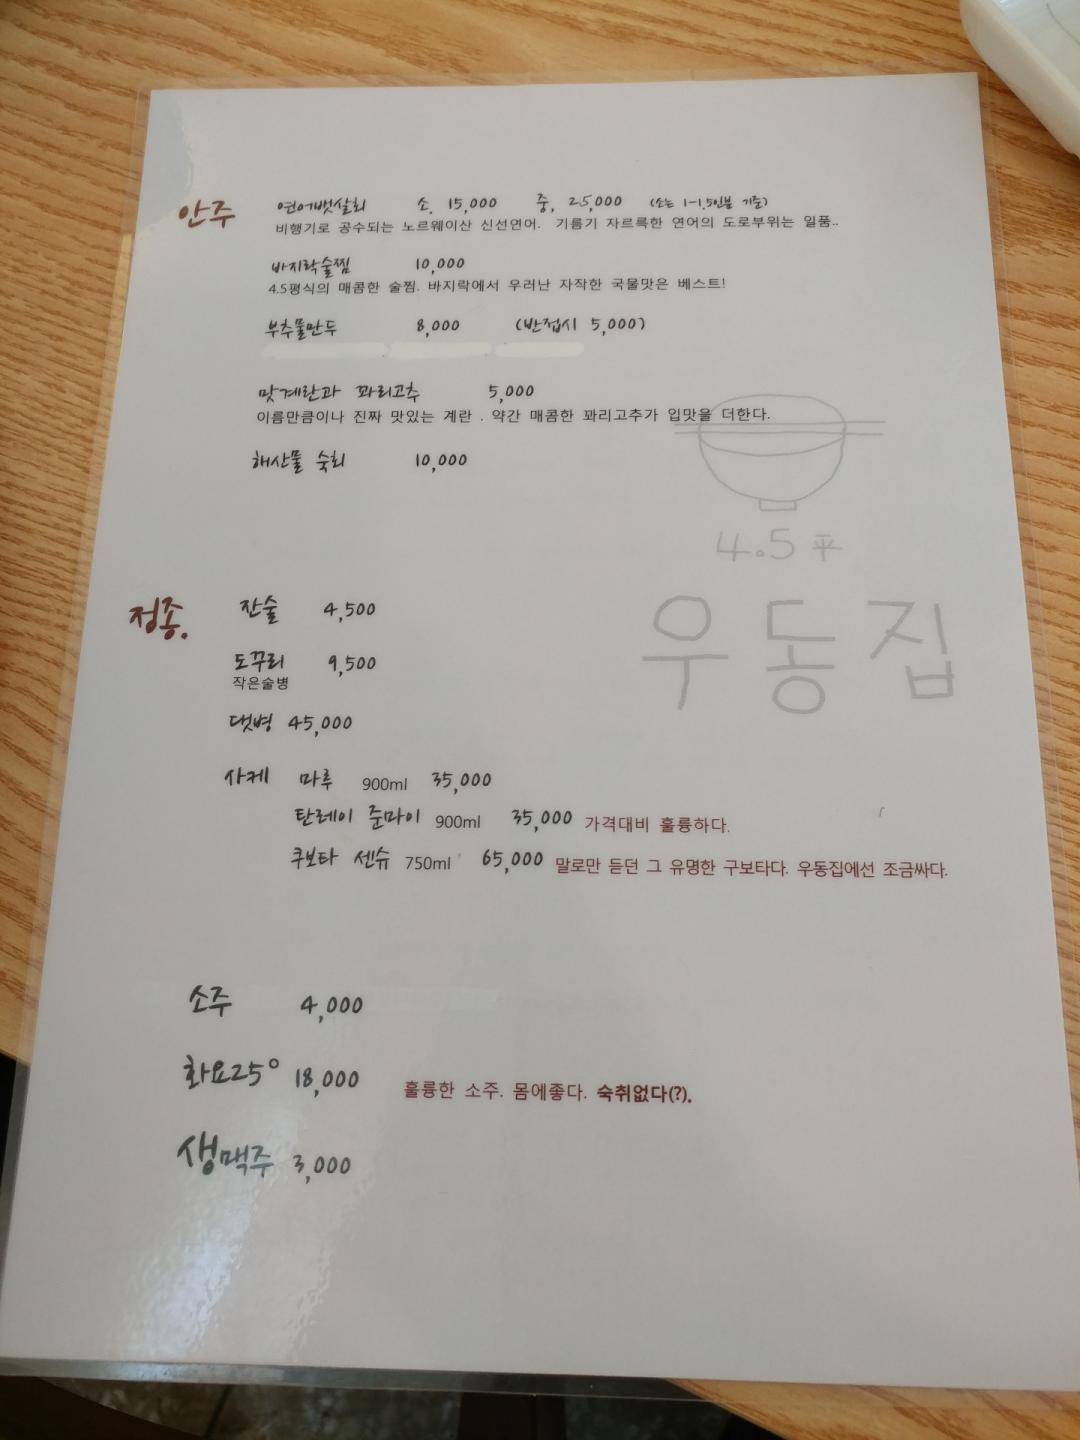 안주 연어뱃살회 소. 15,000 중, 25,000 (소는 1-1.5인분 기준)
비행기로 공수되는 노르웨이산 신선연어. 기름기 자르륵한 연어의 도로부위는 일품..
바지락술찜 10,000
4.5평식의 매콤한 술찜. 바지락에서 우러난 자작한 국물맛은 베스트!
부추물만두 8,000 (반접시 5,000)
맛계란과 꽈리고추 5,000
이름만큼이나 진짜 맛있는 계란 . 약간 매콤한 꽈리고추가 입맛을 더한다.
해산물 숙회 10,000
4.5平
우동집
정종. 잔술 4,500
도꾸리 9,500
작은술병
댓병 45,000
사케 마루 900ml 35,000
탄레이 준마이 900ml 35,000 가격대비 훌륭하다.
쿠보타 센슈 750ml 65,000 말로만 듣던 그 유명한 구보타다. 우동집에선 조금싸다.
소주 4,000
화요25° 18,000 훌륭한 소주. 몸에좋다. 숙취없다(?).
생맥주 3,000